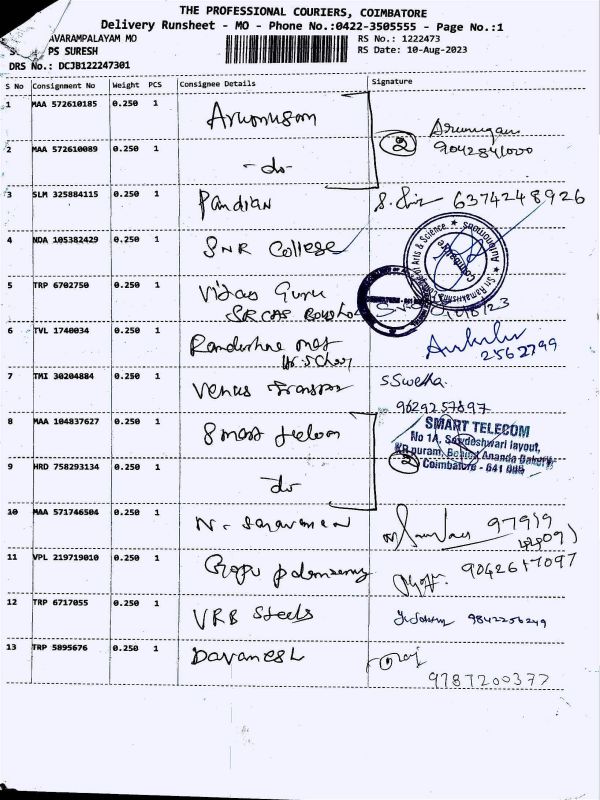 THE PROFESSIONAL COURIERS, COIMBATORE
Delivery Runsheet - MO - Phone No.:0422-3505555 - Page No.:1
AVARAMPALAYAM MO
RS No.: 1222473
PS SURESH
RS Date: 10-Aug-2023
DRS No.: DCJB122247301
S No Consignment No Weight PCS Consignee Details Signature
1 MAA 572610185 0.250 1 Arumugam
Arumugam
9042841000
2
2 MAA 572610089 0.250 1 -do-
3 SLM 325884115 0.250 1 Pandian 6374248926
4 NDA 105382429 0.250 1 SNR College
Coimbatore
Arts & Science
Autonomous
5 TRP 6702750 0.250 1 Vidas Guru
SRCAS
6 TVL 1740034 0.250 1
2562799
7 TMI 30204884 0.250 1 Venus Transpor S Swetha.
9629257897
8 MAA 104837627 0.250 1 Smart Telecom
SMART TELECOM
No 1A, Sowdeshwari layout,
KR puram, Behind Ananda Bakery,
Coimbatore - 641 006
2
9 HRD 758293134 0.250 1 do
10 MAA 571746504 0.250 1 N. Saravanan 97919
11 VPL 219719010 0.250 1 9042617097
12 TRP 6717055 0.250 1 VRB Steels 9842256249
13 TRP 5895676 0.250 1 Davanesh
9787200377